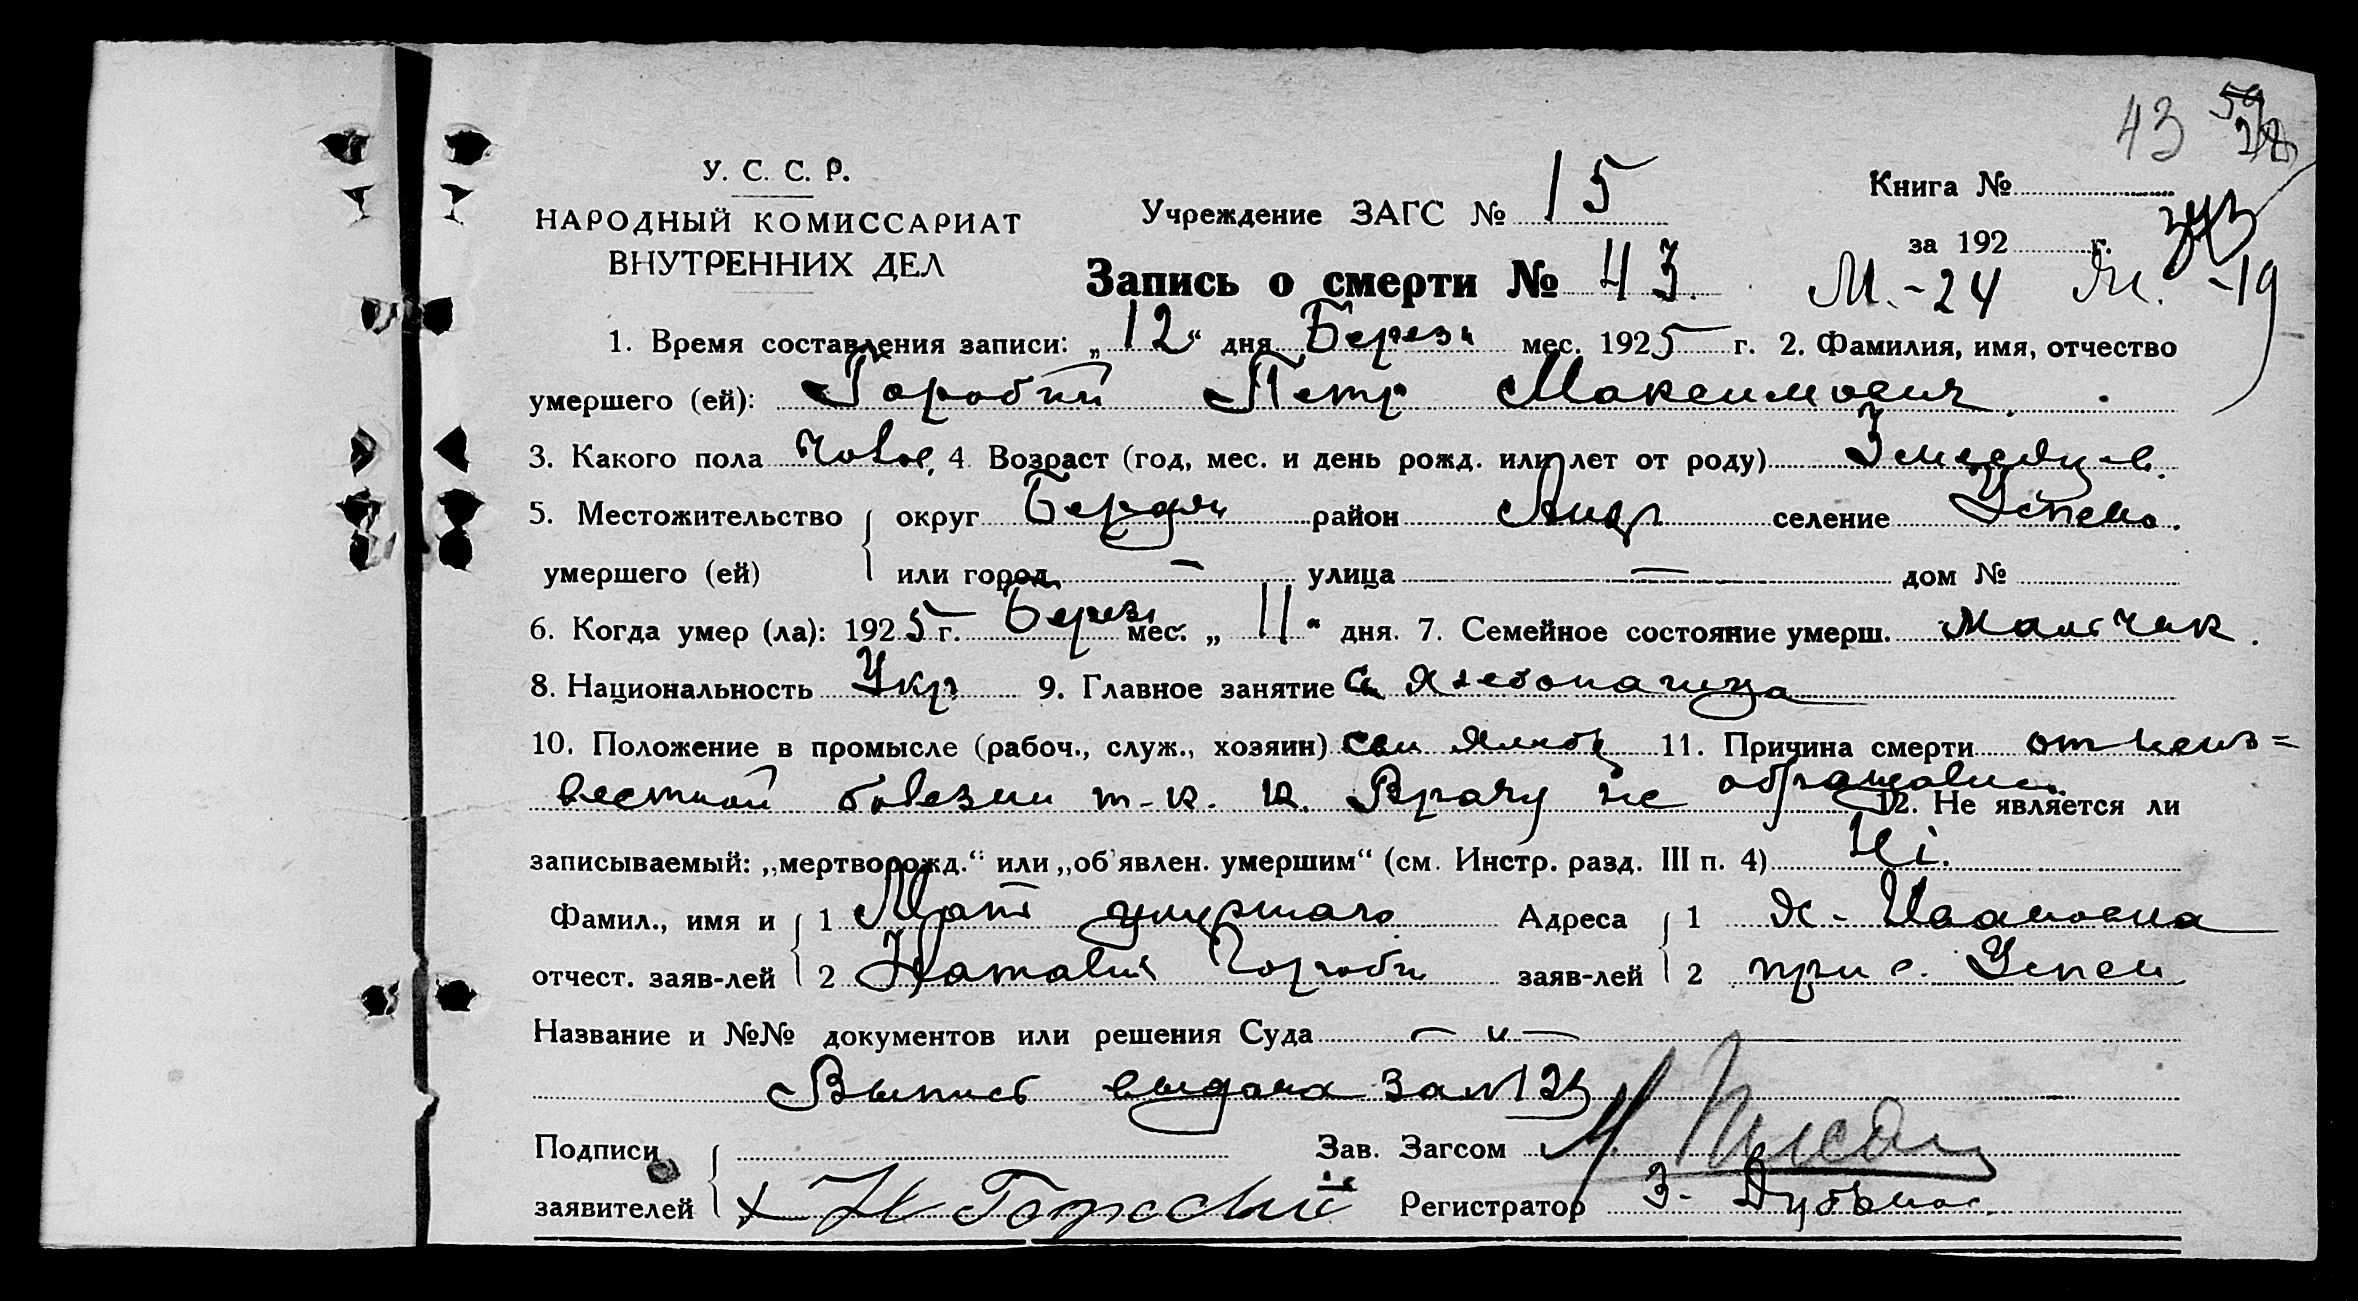 43 59
28
У. С. С. Р.
НАРОДНЫЙ КОМИССАРИАТ
ВНУТРЕННИХ ДЕЛ
Учреждение ЗАГС № 15
Книга №
за 192 г.
Запись о смерти № 43.
М. - 24 Ж. - 19
1. Время составления записи: „12“ дня Березн мес. 1925 г. 2. Фамилия, имя, отчество
умершего (ей): Горобий Петр Максимович.
3. Какого пола 4. Возраст (год, мес. и день рожд. или лет от роду) 3 месяцев.
5. Местожительство округ Бердян район Андр селение Успено.
умершего (ей) или город — улица — дом №
6. Когда умер (ла): 1925 г. Березн мес. „11“ дня. 7. Семейное состояние умерш. мальчик.
8. Национальность Укр. 9. Главное занятие Хлебопашца
10. Положение в промысле (рабоч., служ., хозяин) 11. Причина смерти от неиз=
вестной болезни т-к. к. Врачу не обращались
12. Не является ли
записываемый: „мертворожд.“ или „об'явлен. умершим“ (см. Инстр. разд. III п. 4) Ні.
Фамил., имя и 1 Мать умершаго Адреса 1 х - Ивановка
отчест. заяв-лей 2 Наталия Горобий заяв-лей 2 при с. Успен
Название и №№ документов или решения Суда — „ —
Выпись выдана за №
Подписи Зав. Загсом
заявителей х Н Горобий Регистратор З.